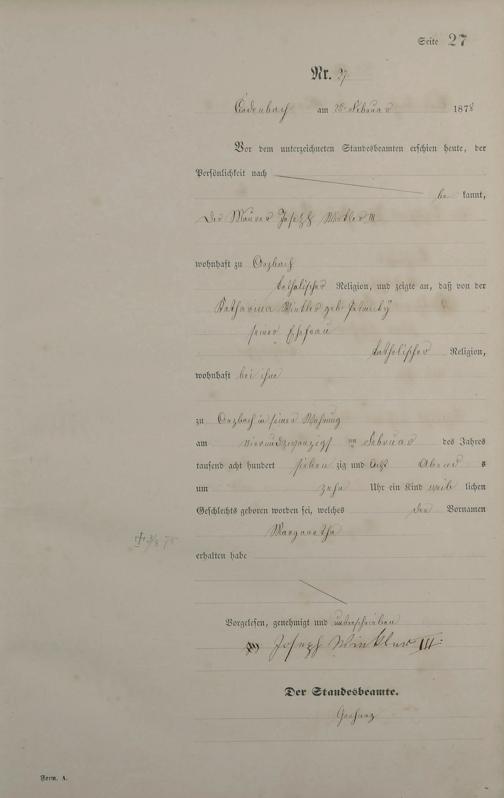 Seite 27
Nr. 27
am 28 Februar 1878
Vor dem unterzeichneten Standesbeamten erschien heute, der
Persönlichkeit nach
be kannt,
Der Maurer Joseph Winkler III
wohnhaft zu
katholischer Religion, und zeigte an, daß von der
Katharina Winkler geb.
seiner Ehefrau
katholischer Religion,
wohnhaft bei ihm
zu in seiner Wohnung
am vierundzwanzigst en Februar des Jahres
tausend acht hundert sieben zig und acht Abend s
um zehn Uhr ein Kind weib lichen
Geschlechts geboren worden sei, welches den Vornamen
Margaretha
erhalten habe
Vorgelesen, genehmigt und unterschrieben
Joseph Winkler III.
Der Standesbeamte.
Form. A.